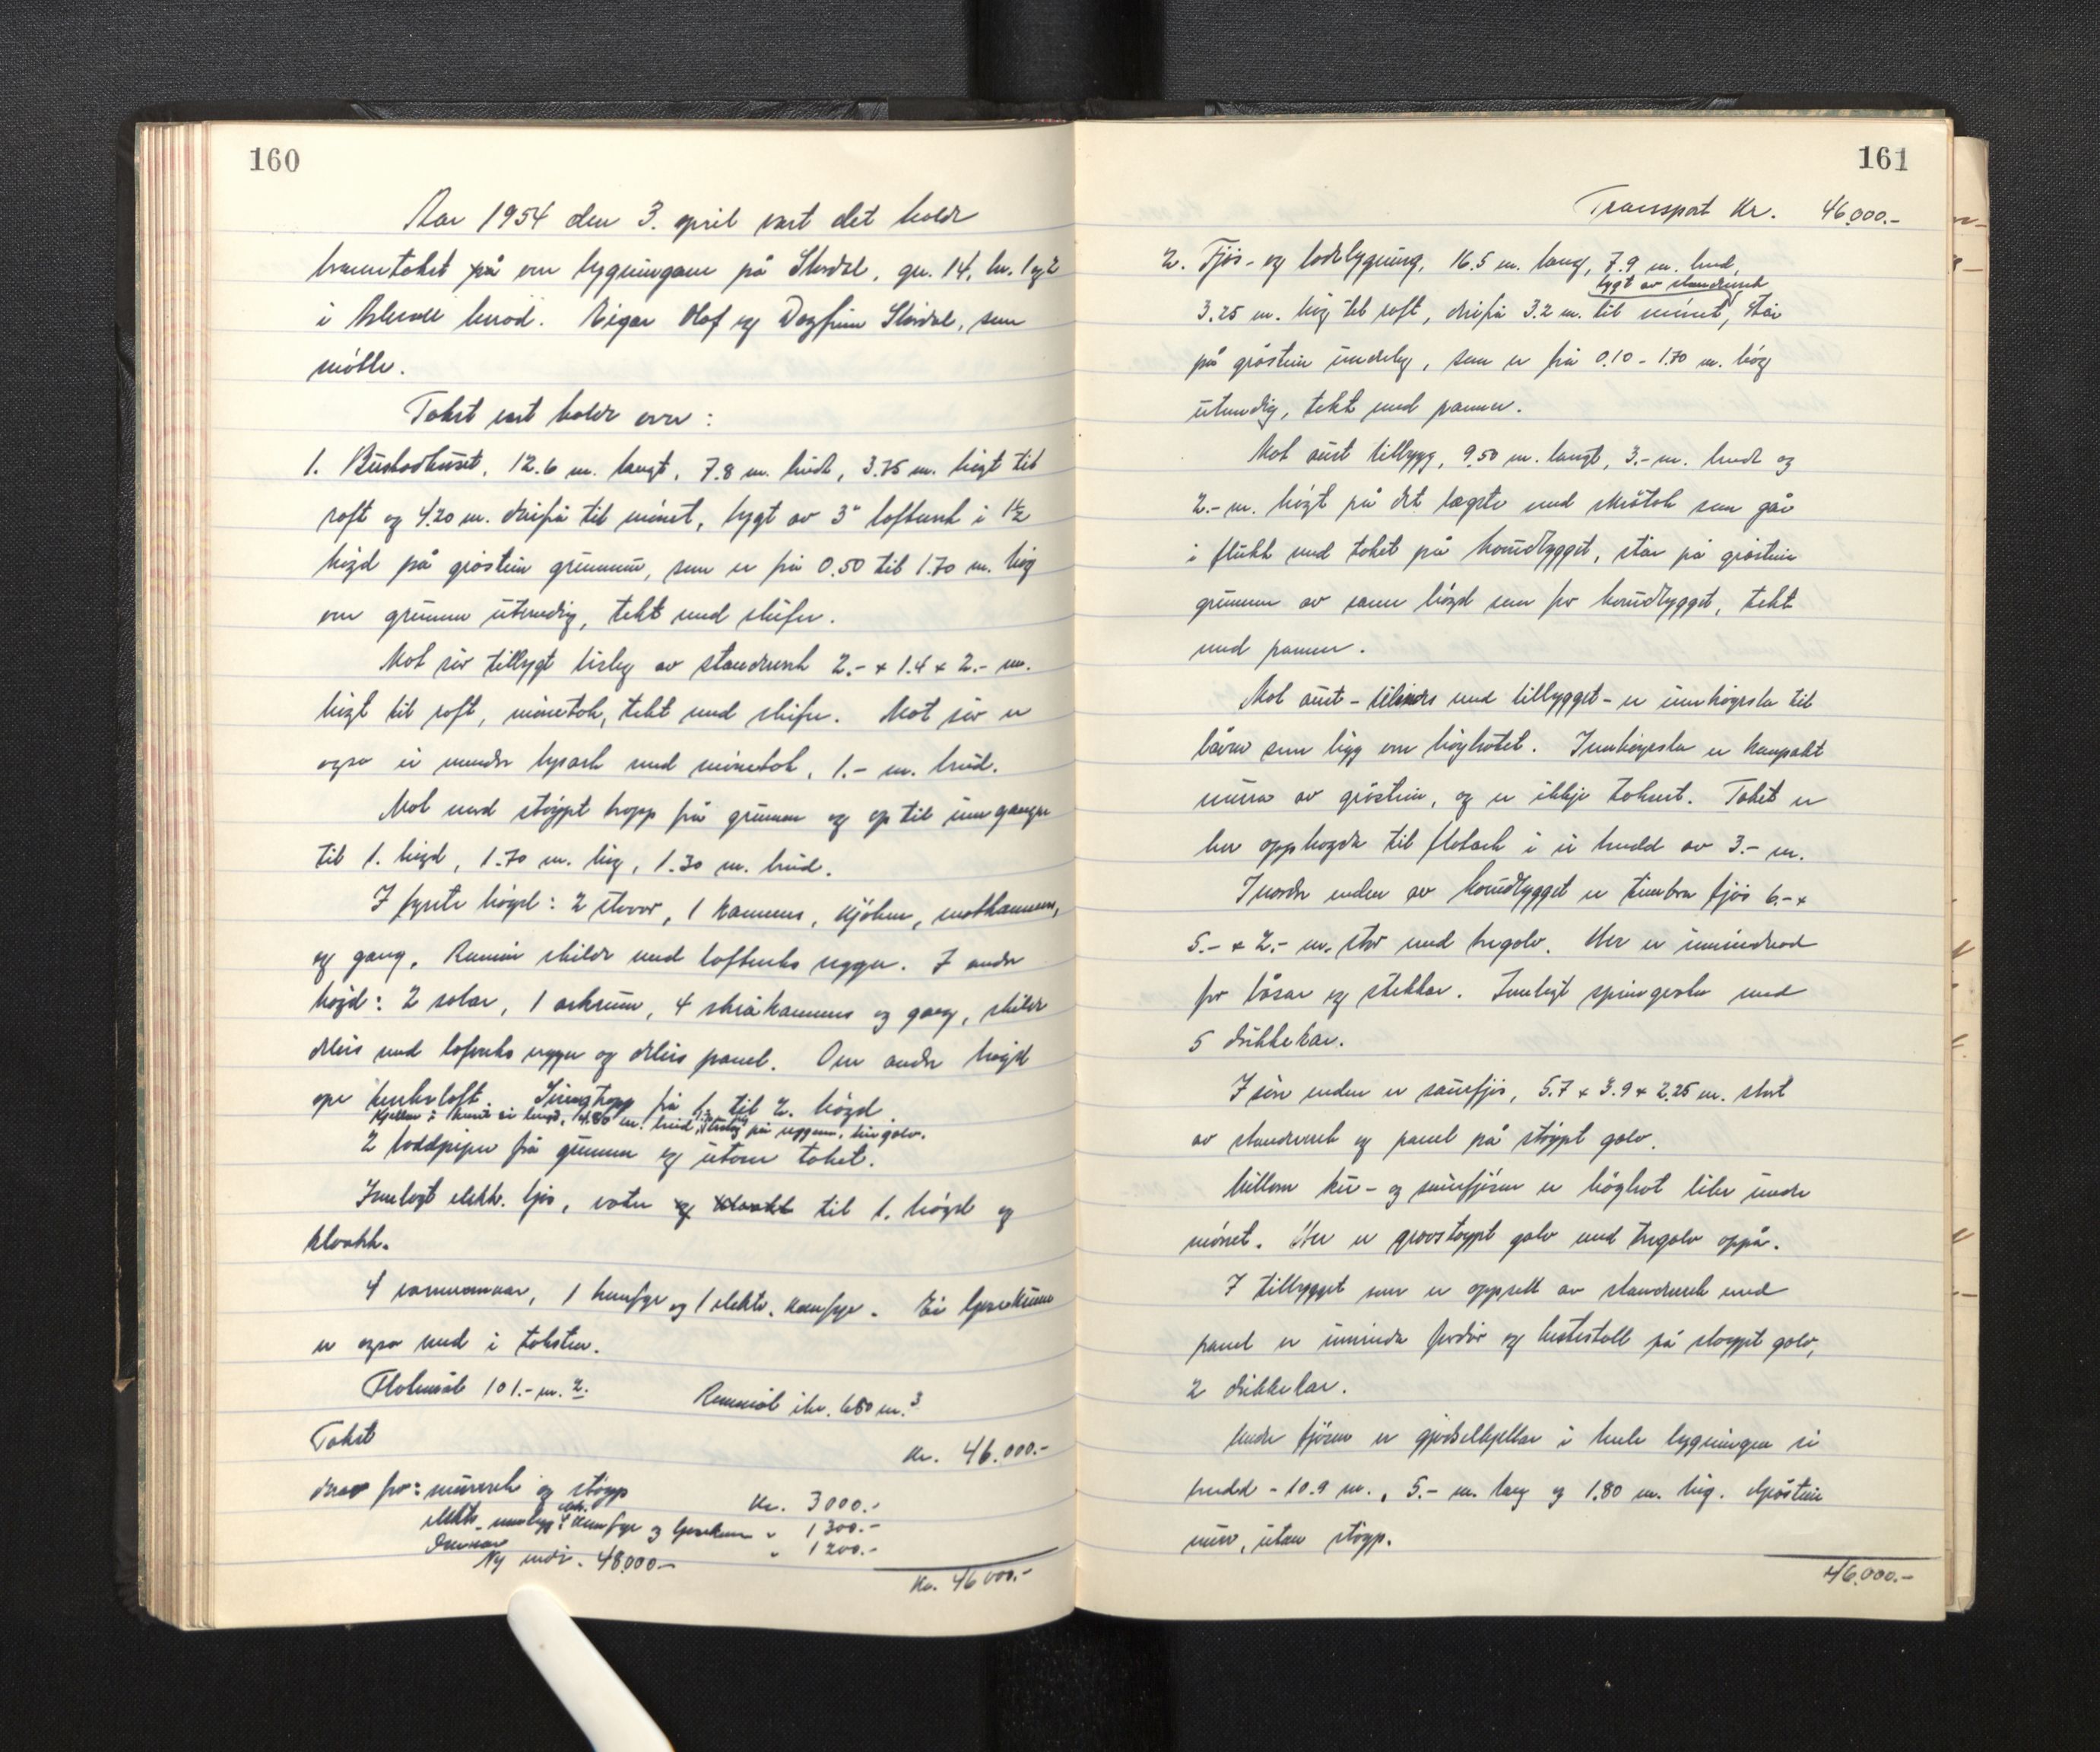 160
Aar 1954 den 3. april vart det halde
branntakst på om bygningane på Stordal, gn. 14, br. 1 og 2
i herad. Eigar Olaf og Dagfinn Stordal, som
møtte.
Takst vart halde over:
1. Bustadhuset, 12.6 m. langt, 7.8 m. breidt, 3.75 m. høgt til
roft og 4.20 m. derifrå til mønet, bygt av 3" loftverk i 1½
høgd på gråstein grunnmur, som er frå 0.50 til 1.70 m. høg
over grunnen utvendig, tekt med skifer.
Mot sør tilbygt bislag av standverk 2.- x 1.4 x 2.- m.
høgt til roft, mønetak, tekt med skifer. Mot sør er
også ei mindre lysark med mønetak, 1.- m. breid.
Mot nord støypt tropp frå grunnen og op til inngangen
til 1. høgd, 1.70 m. høg, 1.30 m. breid.
I fyrste høgd: 2 stover, 1 kammers, kjøken, matkammers,
og gang. Rummi skilde med loftverks vegger. I andre
høgd: 2 salar, 1 arkrum, 4 skråkammers og gang, skilde
dels med loftverks vegger og dels panel. Over andre høgd
ope hembsloft. Svingtropp frå 1. til 2. høgd.
Kjellar i husets lengd, 4.80 m. breid, på veggene, golv.
2 loddpiper frå grunnen og utover taket.
Innlagt elektr. ljos, vatn og kloakk til 1. høgd og
kloakk.
4 varmeomnar, 1 komfyr og 1 elektr. komfyr. Ei
er også med i taksten.
Flatemål 101.- m.2. Rummål ihr. 680 m.3
Takst Kr. 46.000.-
derav for: murverk og støyp Kr. 3000.-
elektr. innlegg, elek. komfyr og " 1300.-
Omnar " 1200.-
Ny verdi. 48000.-
Kr. 46000.-
161
Transport Kr. 46.000.-
2. Fjøs- og lødebygning, 16.5 m. lang, 7.9 m. breid,
bygt av standverk
3.25 m. høg til roft, derifrå 3.2 m. til mønet, står
på gråstein underlag, som er frå 0.10 - 1.70 m. høg
utvendig, tekt med panner.
Mot aust tilbygg, 9.50 m. langt, 3.- m. breidt og
2.- m. høgt på det lægste med skråtak som går
i flukt med taket på hovudbygget, står på gråstein
grunnmur av same høgd som for hovudbygget, tekt
med panner.
Mot aust - attmed tilbygget - er innkøyrsla til
låven som ligg over høyhotet. Innkøyrsla er kompakt
murar av gråstein, og er ikkje taksert. Taket er
her opphøgde til flatark i ei breidd av 3.- m.
I nordre enden av hovudbygget er timbra fjøs 6.- x
5.- x 2.- m. stor med tregolv. Her er innreidd
for båsar og stekkar. Innlagt springvatn med
5 drikkekar.
I søre enden er sauefjøs, 5.7 x 3.9 x 2.25 m. stort
av standverk og panel på støypt golv.
Millom ku- og sauefjøsen er høyhot like under
mønet. Her er grovstøypt golv med tregolv oppå.
I tilbygget som er oppsett av standverk med
panel er innreidde og hestestall på støypt golv,
2 drikkekar.
Under fjøsen er gjødselkjellar i heile bygningen si
breidd - 10.9 m., 5.- m. lang og 1.80 m. høg. Gråstein
mur, utan støyp.
46.000.-